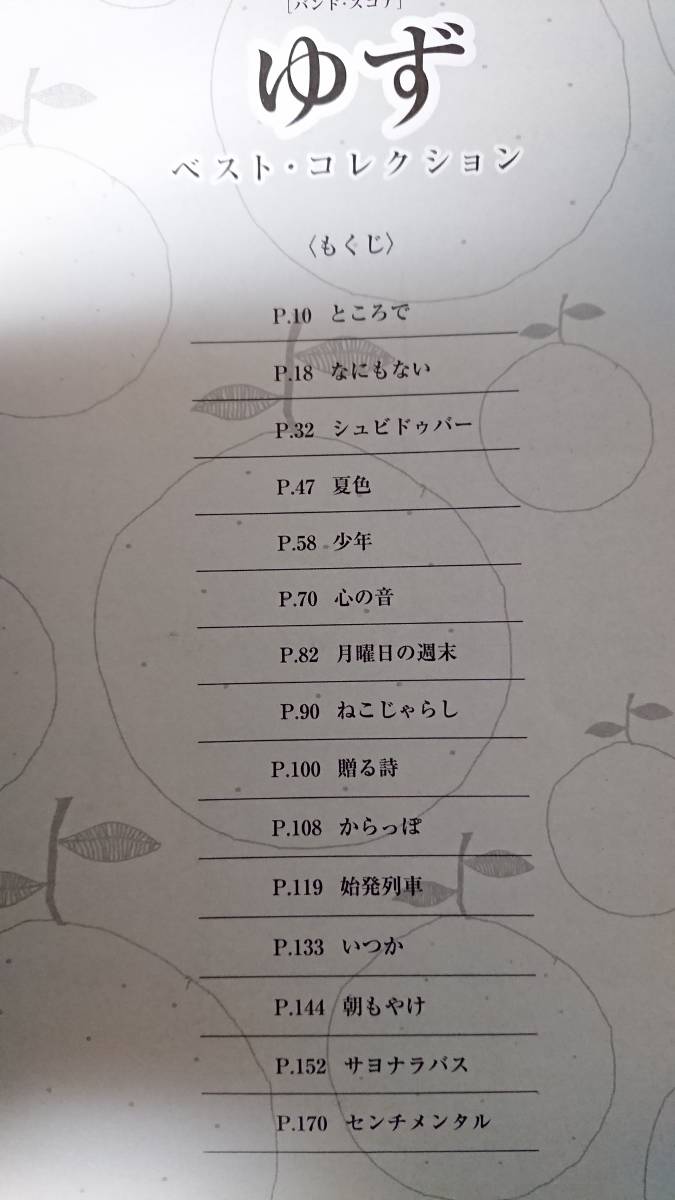 [バンド・スコア]
ゆず
ベスト・コレクション
〈もくじ〉
P.10 ところで
P.18 なにもない
P.32 シュビドゥバー
P.47 夏色
P.58 少年
P.70 心の音
P.82 月曜日の週末
P.90 ねこじゃらし
P.100 贈る詩
P.108 からっぽ
P.119 始発列車
P.133 いつか
P.144 朝もやけ
P.152 サヨナラバス
P.170 センチメンタル